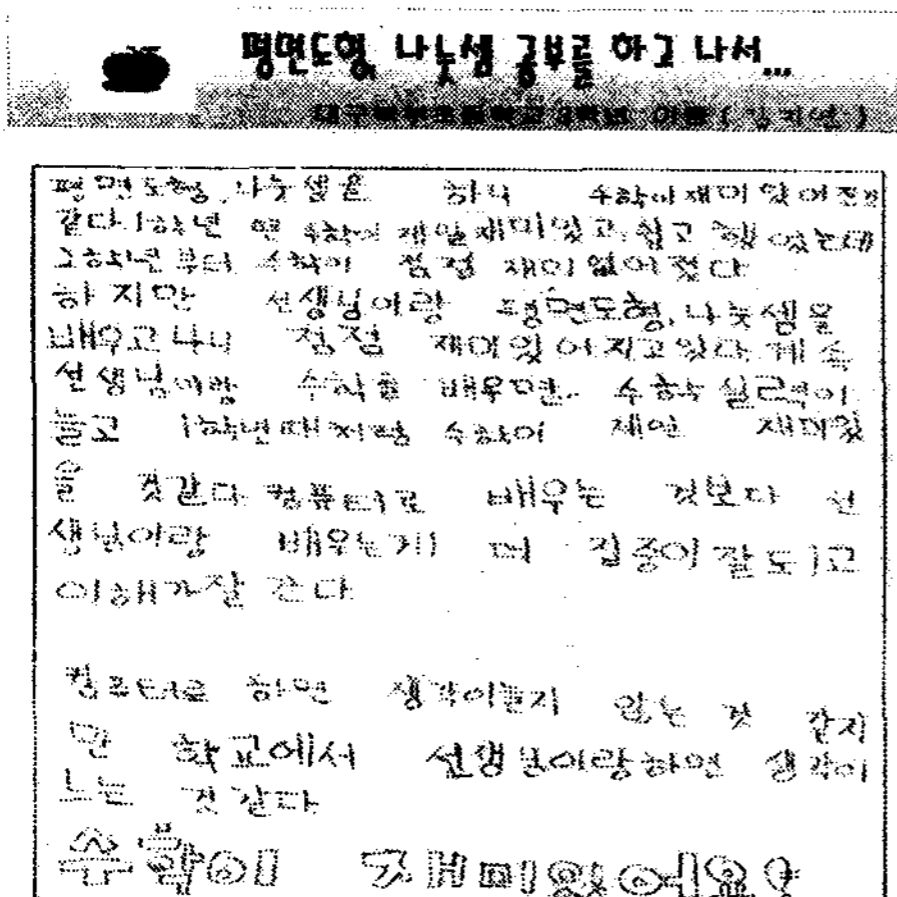 평면도형, 나눗셈 공부를 하고 나서...
대구북부초등학교 3학년 이름 (김지연)
평면도형, 나눗셈을 하니 수학이 재미있어진것
같다. 1학년 땐 수학이 제일 재미있고, 쉽고 했었는데
2학년부터 수학이 점점 재미없어졌다
하지만 선생님이랑 평면도형, 나눗셈을
배우고 나니 점점 재미있어지고있다. 계속
선생님이랑 수학을 배우면 수학 실력이
늘고 1학년때처럼 수학이 제일 재미있
을 것같다. 컴퓨터로 배우는 것보다 선
생님이랑 배우는게 더 집중이 잘 되고
이해가 잘 간다
컴퓨터로 하면 생각이늘지 않는 것 같지
만 학교에서 선생님이랑하면 생각이
느는 것 같다
수학이 재미있어요